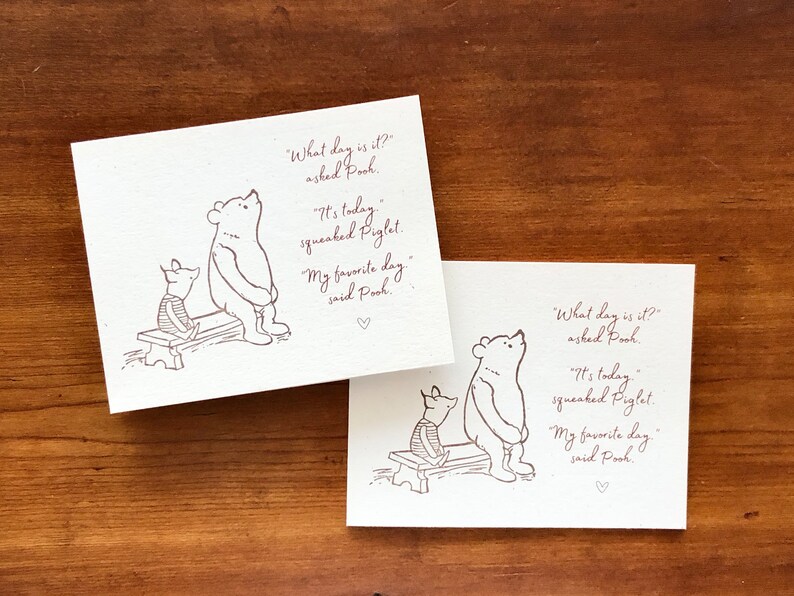 "What day is it?"
asked Pooh.
"It's today."
squeaked Piglet.
"My favorite day."
said Pooh.
"What day is it?"
asked Pooh.
"It's today."
squeaked Piglet.
"My favorite day."
said Pooh.